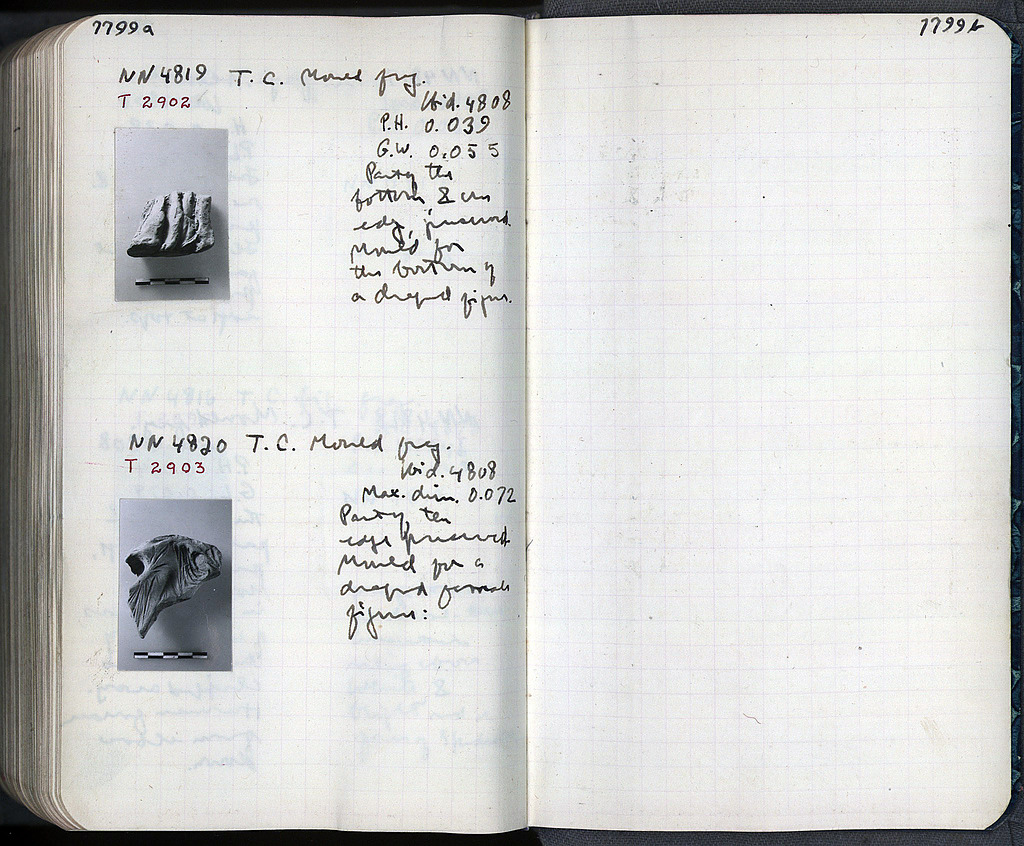 7799a
7799b
NN 4819 T.C. Mould frg.
T 2902
Ibid. 4808
P.H. 0.039
G.W. 0.055
Part of the
bottom & one
edge, preserved.
Mould for
the bottom of
a draped figure.
NN 4820 T.C. Mould frg.
T 2903
Ibid. 4808
Max. dim. 0.072
Part of
edge preserved
Mould for a
draped female
figure: